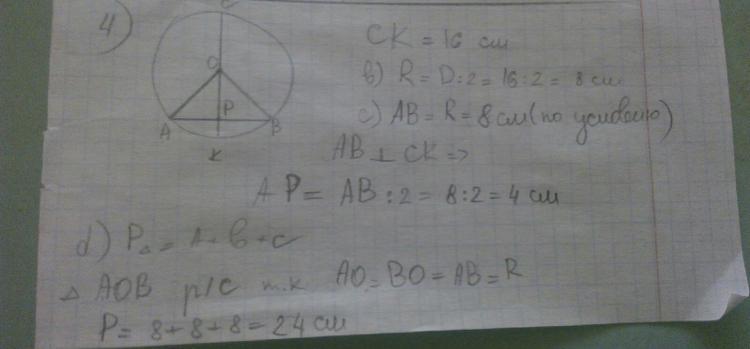 4)
C
O
P
A
B
K
CK = 16 см
b) R = D:2 = 16:2 = 8 см
c) AB = R = 8 см (по условию)
AB ⊥ CK =>
AP = AB:2 = 8:2 = 4 см
d) P△ = a + b + c
△ AOB р/с т.к AO = BO = AB = R
P = 8 + 8 + 8 = 24 см